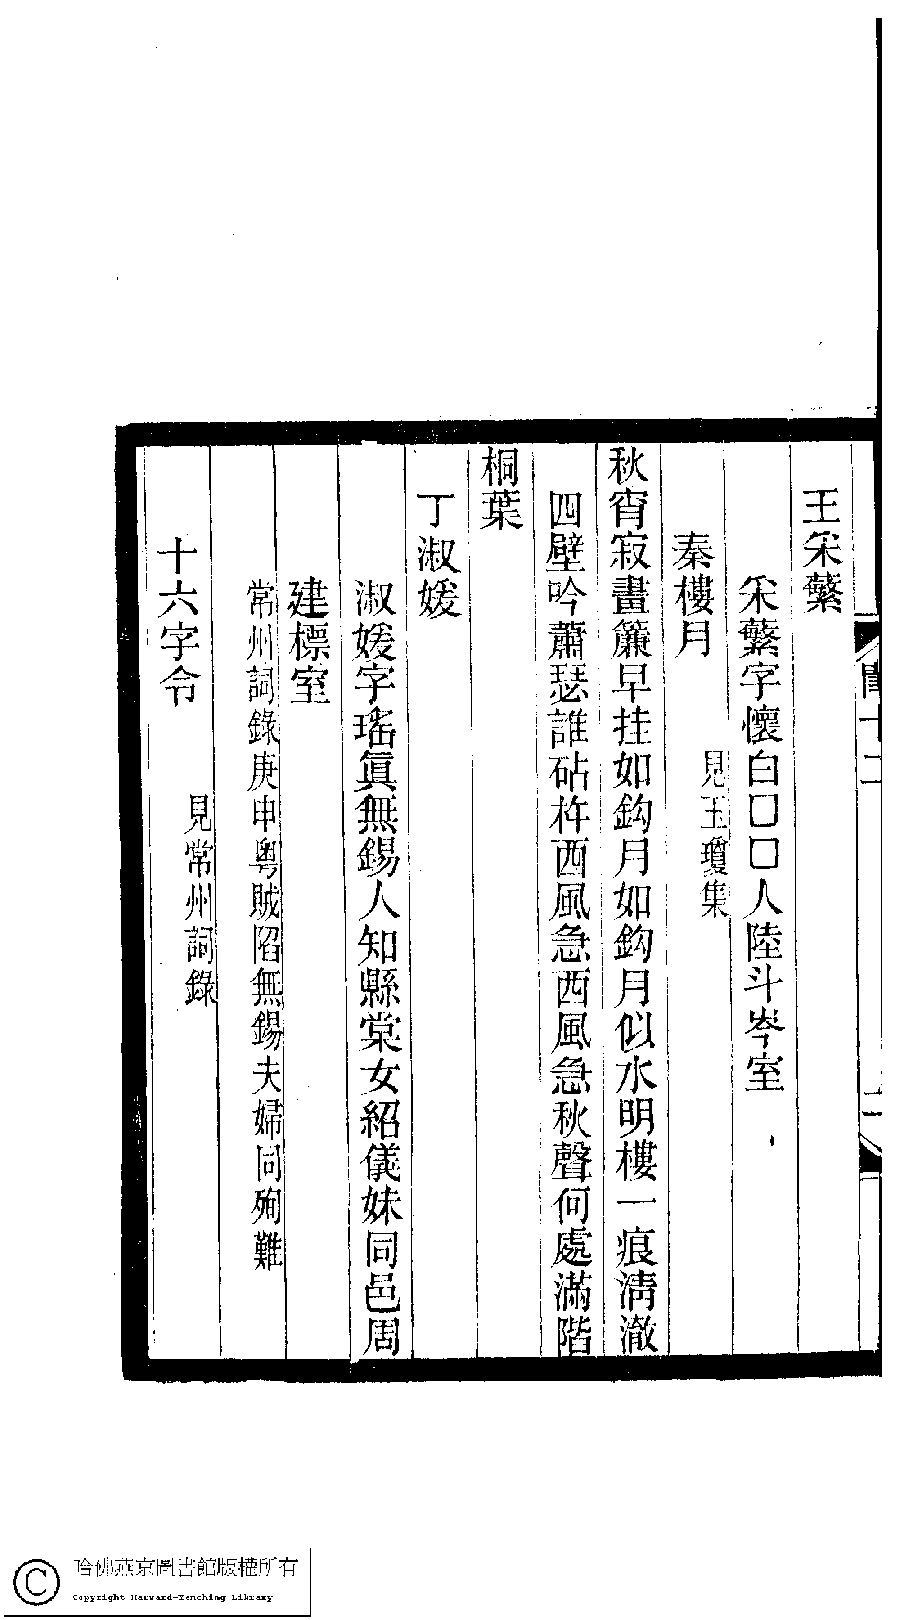 閨十二
二
王采蘩
采蘩字懷白囗囗人陸斗岑室
秦樓月
見玉瓊集
秋宵寂畫簾早挂如鈎月如鈎月似水明樓一痕淸澈
四壁吟蕭瑟誰砧杵西風急西風急秋聲何處滿階
桐葉
丁淑媛
淑媛字瑤眞無錫人知縣棠女紹儀妹同邑周
建標室
常州詞錄庚申粤賊陷無錫夫婦同殉難
十六字令
見常州詞錄
哈佛燕京圖書館版權所有
Copyright Harvard-Yenching Library